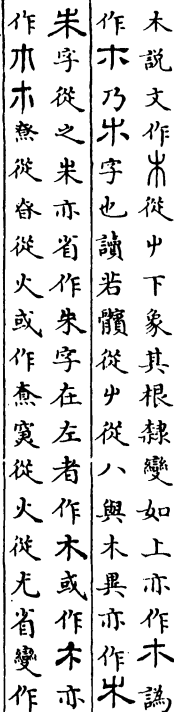 木說文作𣎳從屮下象其根隸變如上亦作木譌
作木乃𣎳字也讀若髕從屮從八與木異亦作𣎳
朱字從之朱亦省作朱字在左者作木或作木亦
作木木尞從昚從火或作尞㝔從火從尤省變作